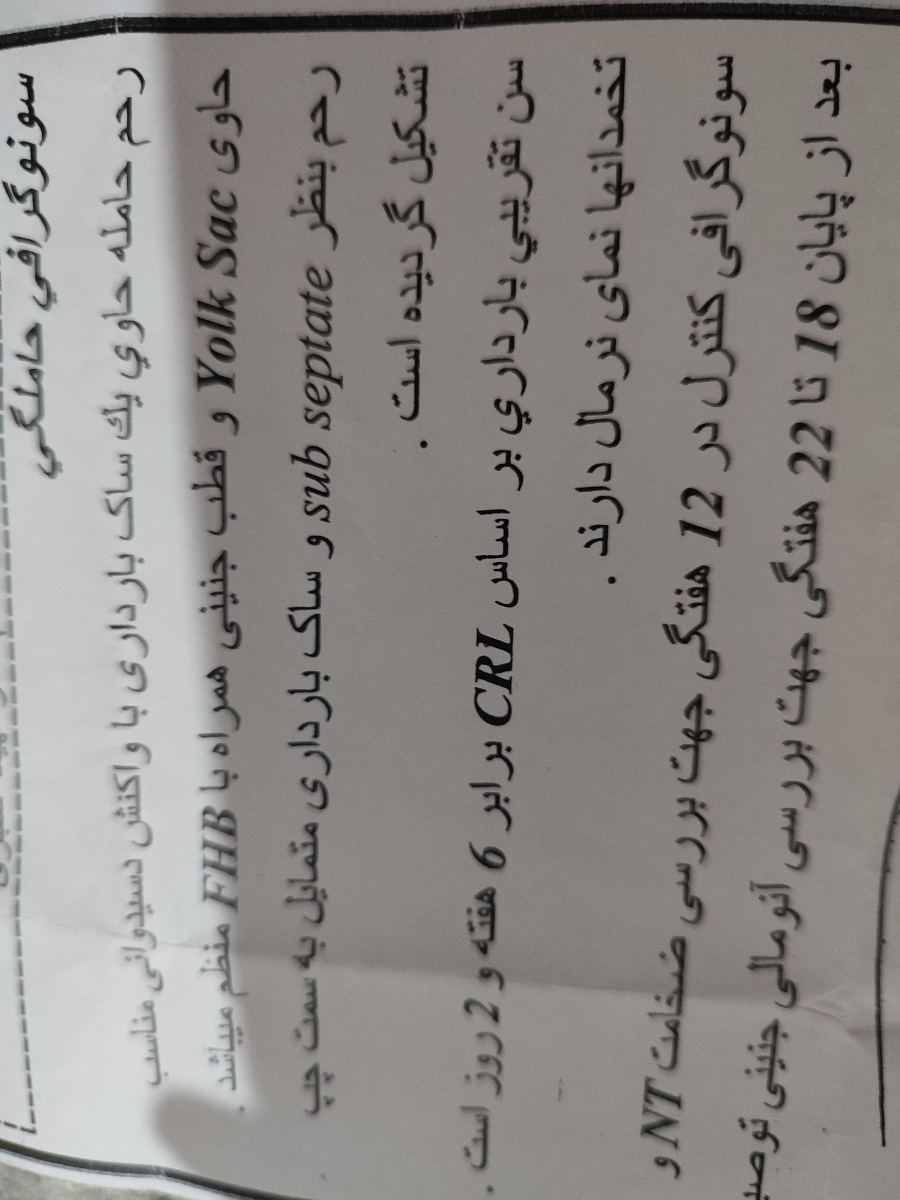 سونوگرافي حاملگي
رحم حامله حاوي يك ساک بارداری با واکنش دسیدوائی مناسب
حاوی Yolk Sac و قطب جنینی همراه با FHB منظم میباشد .
رحم بنظر sub septate و ساک بارداری متمایل به سمت چپ
تشکیل گردیده است .
سن تقريبي بارداري بر اساس CRL برابر 6 هفته و 2 روز است .
تخمدانها نمای نرمال دارند .
سونوگرافی کنترل در 12 هفتگی جهت بررسی ضخامت NT و
بعد از پایان 18 تا 22 هفتگی جهت بررسی آنومالی جنینی